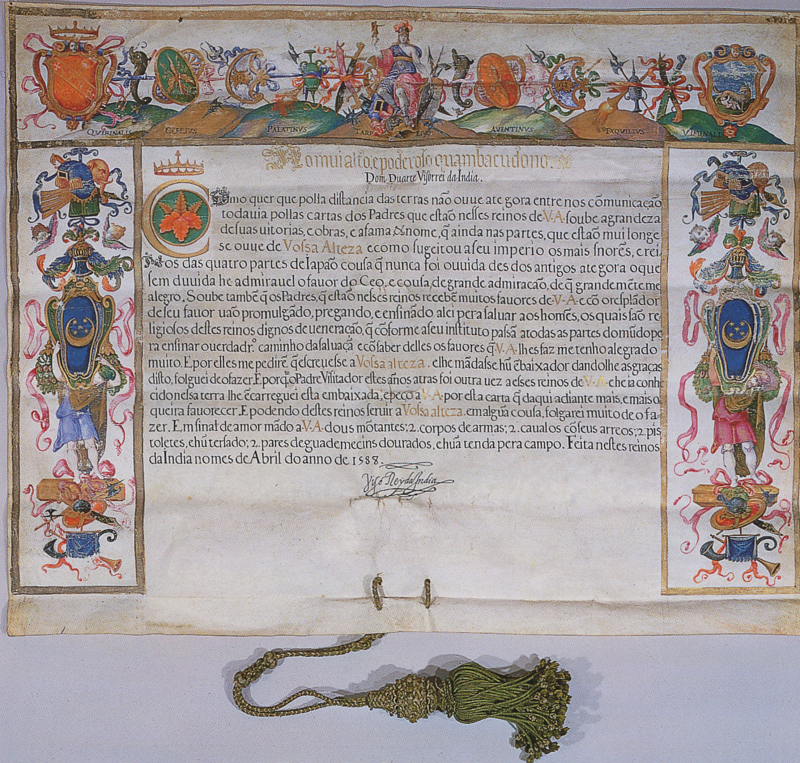 QVIRINALIS CELIVS PALATINVS TARP EIVS AVENTINVS EXQVILIVS VIMINALIS
Ao mui alto, e poderoso quambacudono.
Dom Duarte Visorrei da India.
Como quer que polla distancia das terras não ouue ate gora entre nos cōmunicação
todauia pollas cartas dos Padres que estaõ nesses reinos de V.A. soube a grandeza
de suas uitorias, e obras, e a fama & nome, q̃ ainda nas partes, que estaõ mui longe
se ouue de Vossa Alteza e como sugeitou a seu imperio os mais snõres, e rei
nos das quatro partes de Iapaõ cousa q̃ nunca foi ouuida des dos antigos ate gora o que
sem duuida he admirauel o fauor do Ceo, e cousa, de grande admiracaõ, de q̃ grandemēte me
alegro. Soube tambē q̃ os Padres, q̃ estaõ nesses reinos recebem muitos fauores de V.A. e cõ o resplãdor
de seu fauor uaõ promulgãdo, pregando, e ensinãdo a lei pera saluar aos homēs, os quais saõ re
ligiosos destes reinos dignos de ueneraçaõ, q̃ cõforme a seu instituto passã a todas as partes do mūdo pe
ra ensinar o uerdadr.º caminho da saluaçã e cõ saber delles os fauores q̃ V.A. lhes faz me tenho alegrado
muito. E por elles me pedirē q̃ escreuesse a Vossa alteza. e lhe mãdasse hū ēbaixador dandolhe as graças
disto, folguei de o fazer. E porq̃ o Padre Visitador estes años atras foi outra uez a esses reinos de V.A. e he ia conhe
cido nessa terra lhe ēcarreguei esta embaixada; e peço a V.A. por esta carta q̃ daqui adiante mais, e mais o
queira fauorecer. E podendo destes reinos seruir a Vossa alteza. em algūa cousa, folgarei muito de o fa
zer. Em sinal de amor mãdo a V.A. dous mõtantes; 2. corpos de armas; 2. caualos cõ seus arreos; 2 pis
toletes, e hū tersado; 2. pares de guademecins dourados, e hūa tenda pera campo. Feita nestes reinos
da India no mes de Abril do anno de 1588.
Viso Rey da India